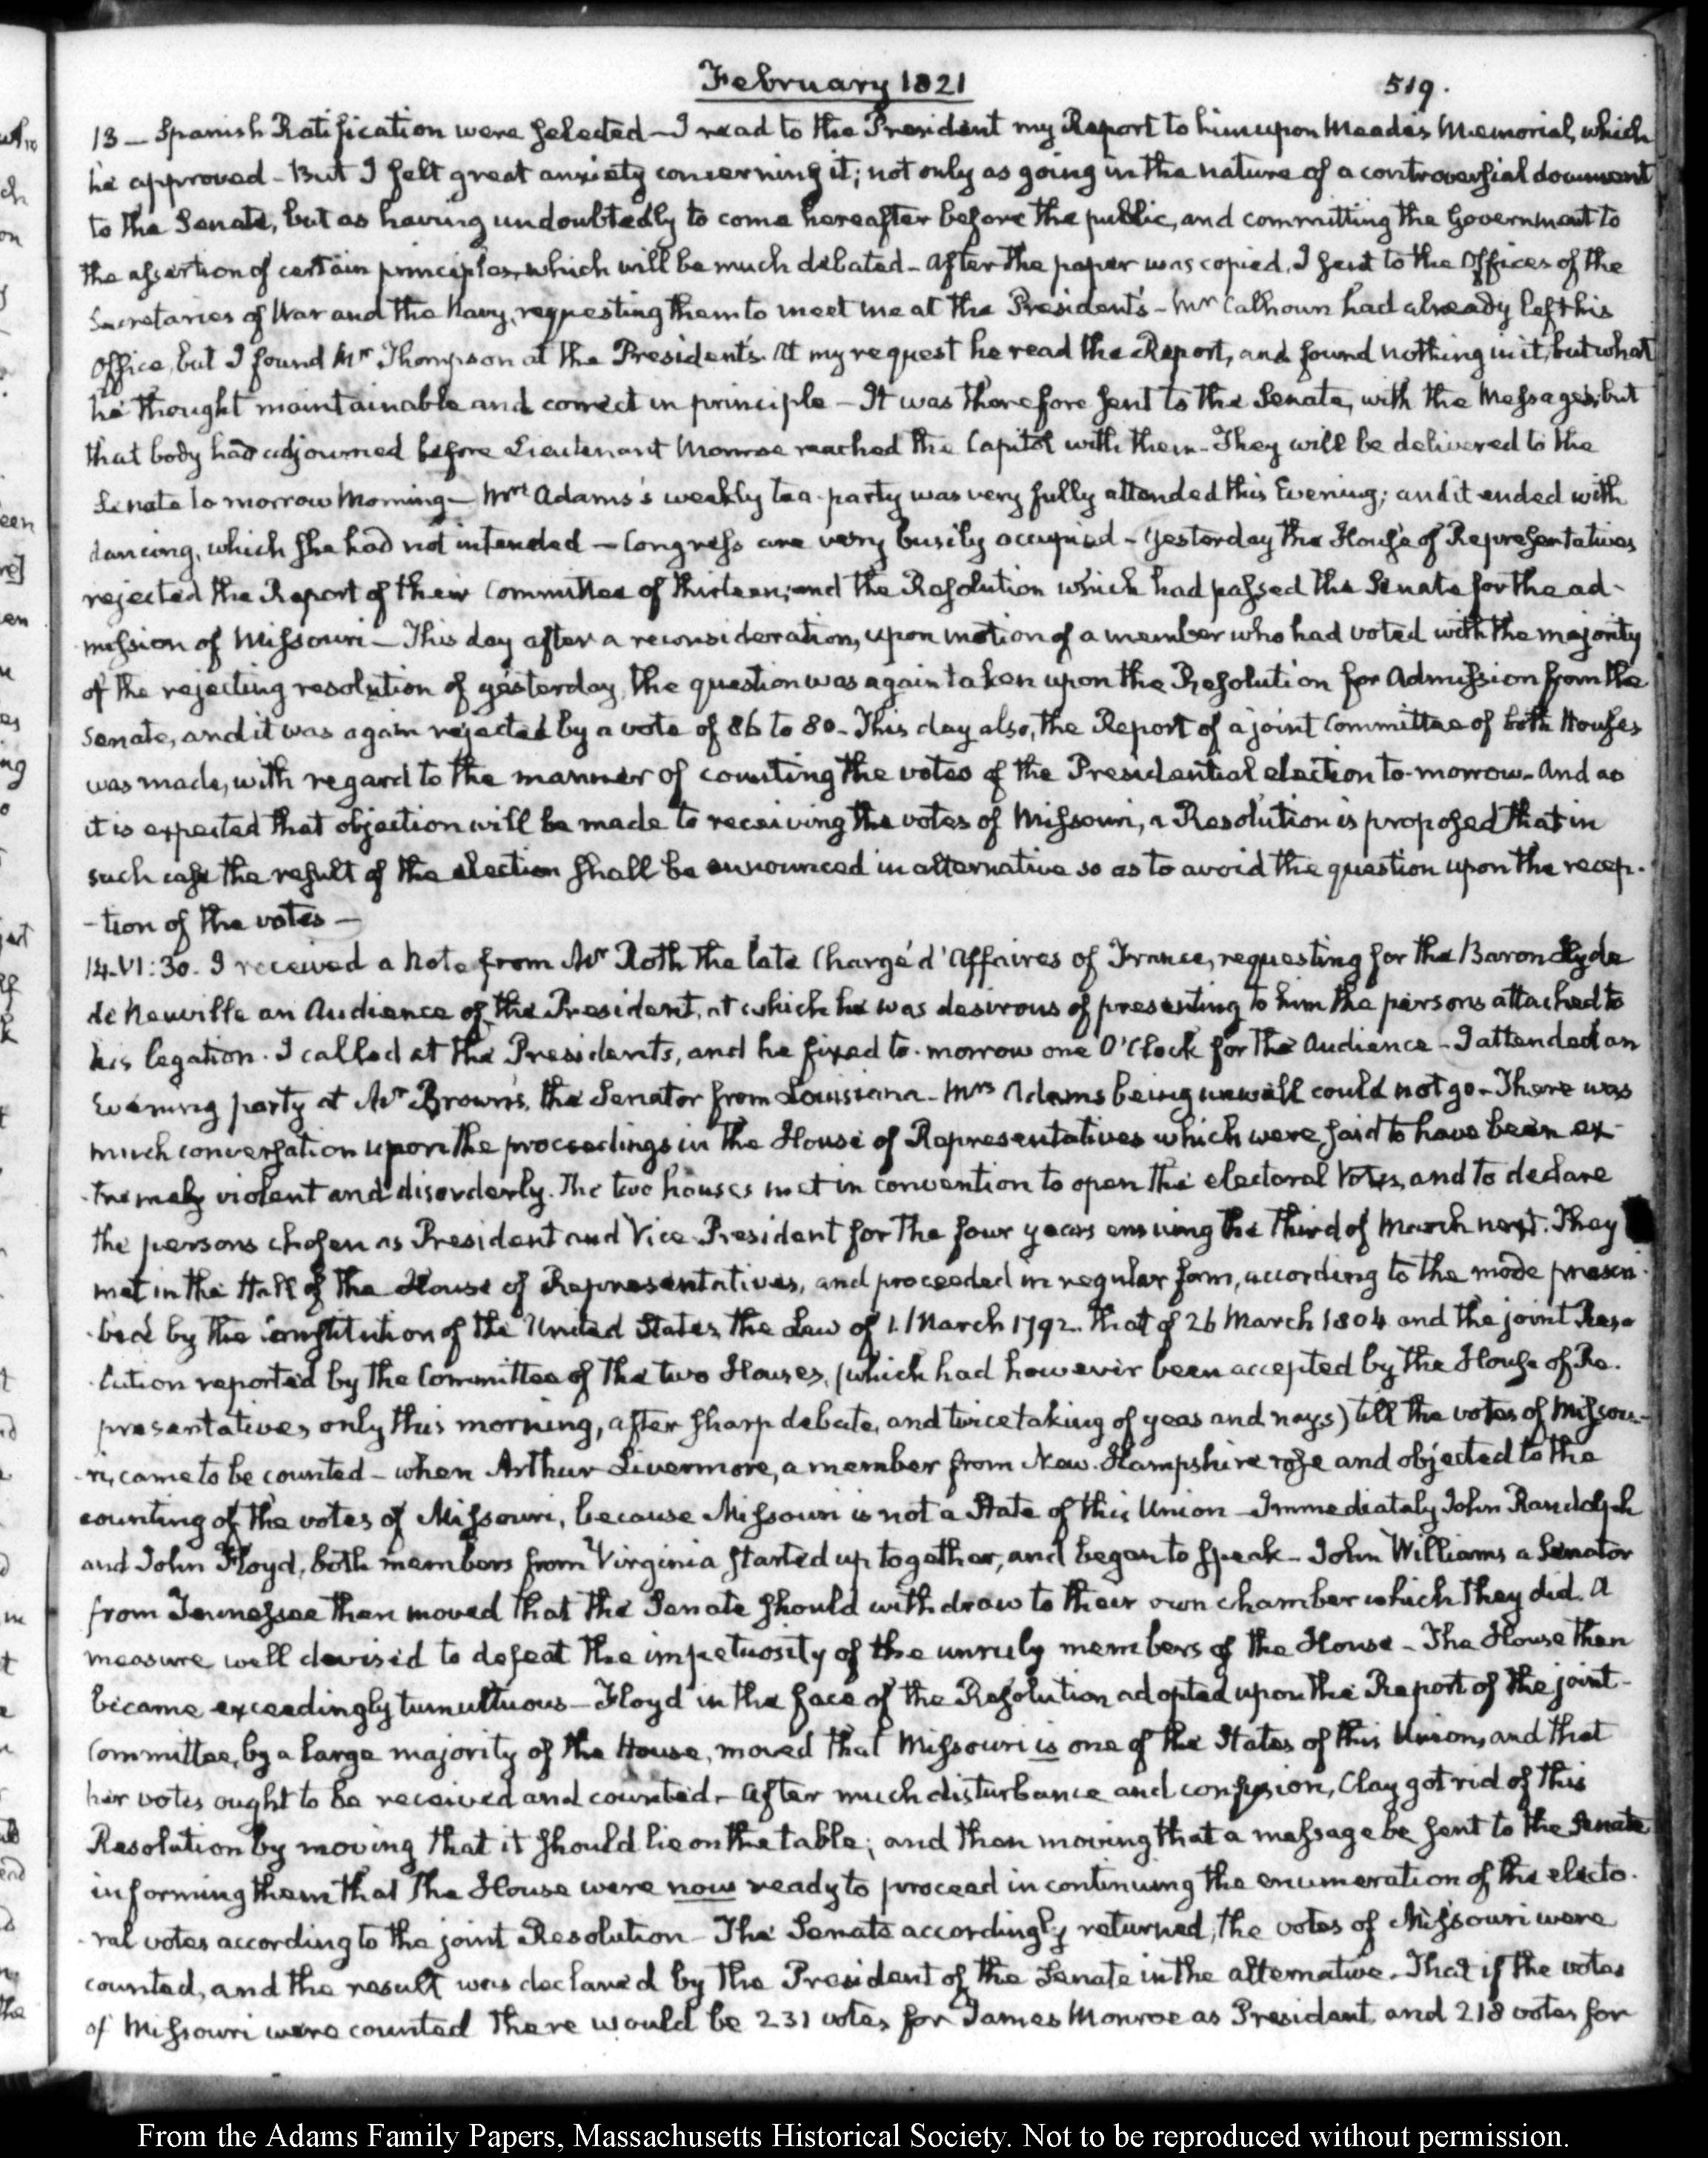 February 1821
519.
13 — Spanish Ratification were selected — I read to the President my Report to him upon Meade's Memorial, which
he approved — But I felt great anxiety concerning it; not only as going in the nature of a controversial document
to the Senate, but as having undoubtedly to come hereafter before the public, and committing the Government to
the assertion of certain principles, which will be much debated — After the paper was copied, I sent to the Offices of the
Secretaries of War and the Navy, requesting them to meet me at the President's — Mr Calhoun had already left his
Office, but I found Mr Thompson at the President's. At my request he read the Report, and found nothing in it, but what
he thought maintainable and correct in principle — It was therefore sent to the Senate, with the Messages; but
that body had adjourned before Lieutenant Monroe reached the Capitol with them — They will be delivered to the
Senate to morrow Morning — Mrs Adams's weekly tea-party was very fully attended this Evening; and it ended with
dancing, which she had not intended — Congress are very busily occupied — Yesterday the House of Representatives
rejected the Report of their Committee of thirteen; and the Resolution which had passed the Senate for the ad-
mission of Missouri — This day after a reconsideration, upon motion of a member who had voted with the majority
of the rejecting resolution of yesterday, the question was again taken upon the Resolution for Admission from the
Senate, and it was again rejected by a vote of 86 to 80 — This day also, the Report of a joint Committee of both Houses
was made, with regard to the manner of counting the votes of the Presidential election to-morrow — And as
it is expected that objection will be made to receiving the votes of Missouri, a Resolution is proposed that in
such case the result of the election shall be announced in alternative so as to avoid the question upon the recep-
-tion of the votes —
14. VI:30. I received a Note from Mr Roth the late Chargé d'Affaires of France, requesting for the Baron Hyde
de Neuville an Audience of the President, at which he was desirous of presenting to him the persons attached to
his legation. I called at the President's, and he fixed to-morrow one O'Clock for the Audience — I attended an
Evening party at Mr Brown's, the Senator from Louisiana — Mrs Adams being unwell could not go — There was
much conversation upon the proceedings in the House of Representatives which were said to have been ex-
-tremely violent and disorderly. The two houses met in convention to open the electoral Votes, and to declare
the persons chosen as President and Vice-President for the four years ensuing the third of March next. They
met in the Hall of the House of Representatives, and proceeded in regular form, according to the mode prescri-
-bed by the Constitution of the United States, the Law of 1. March 1792. that of 26 March 1804 and the joint Reso
-lution reported by the Committee of the two Houses, (which had however been accepted by the House of Re-
presentatives only this morning, after sharp debate, and twice taking of yeas and nays) till the votes of Missou-
-ri, came to be counted — when Arthur Livermore, a member from New-Hampshire rose and objected to the
counting of the votes of Missouri, because Missouri is not a State of this Union — Immediately John Randolph
and John Floyd, both members from Virginia started up together, and began to speak — John Williams a Senator
from Tennessee then moved that the Senate should withdraw to their own chamber which they did. A
measure well devised to defeat the impetuosity of the unruly members of the House — The House then
became exceedingly tumultuous — Floyd in the face of the Resolution adopted upon the Report of the joint-
Committee, by a large majority of the House, moved that Missouri is one of the States of this Union, and that
her votes ought to be received and counted — After much disturbance and confusion, Clay got rid of this
Resolution by moving that it should lie on the table; and then moving that a message be sent to the Senate
informing them that The House were now ready to proceed in continuing the enumeration of the electo-
-ral votes according to the joint Resolution — The Senate accordingly returned, the votes of Missouri were
counted, and the result was declared by the President of the Senate in the alternative. That if the votes
of Missouri were counted there would be 231 votes for James Monroe as President and 218 votes for
From the Adams Family Papers, Massachusetts Historical Society. Not to be reproduced without permission.